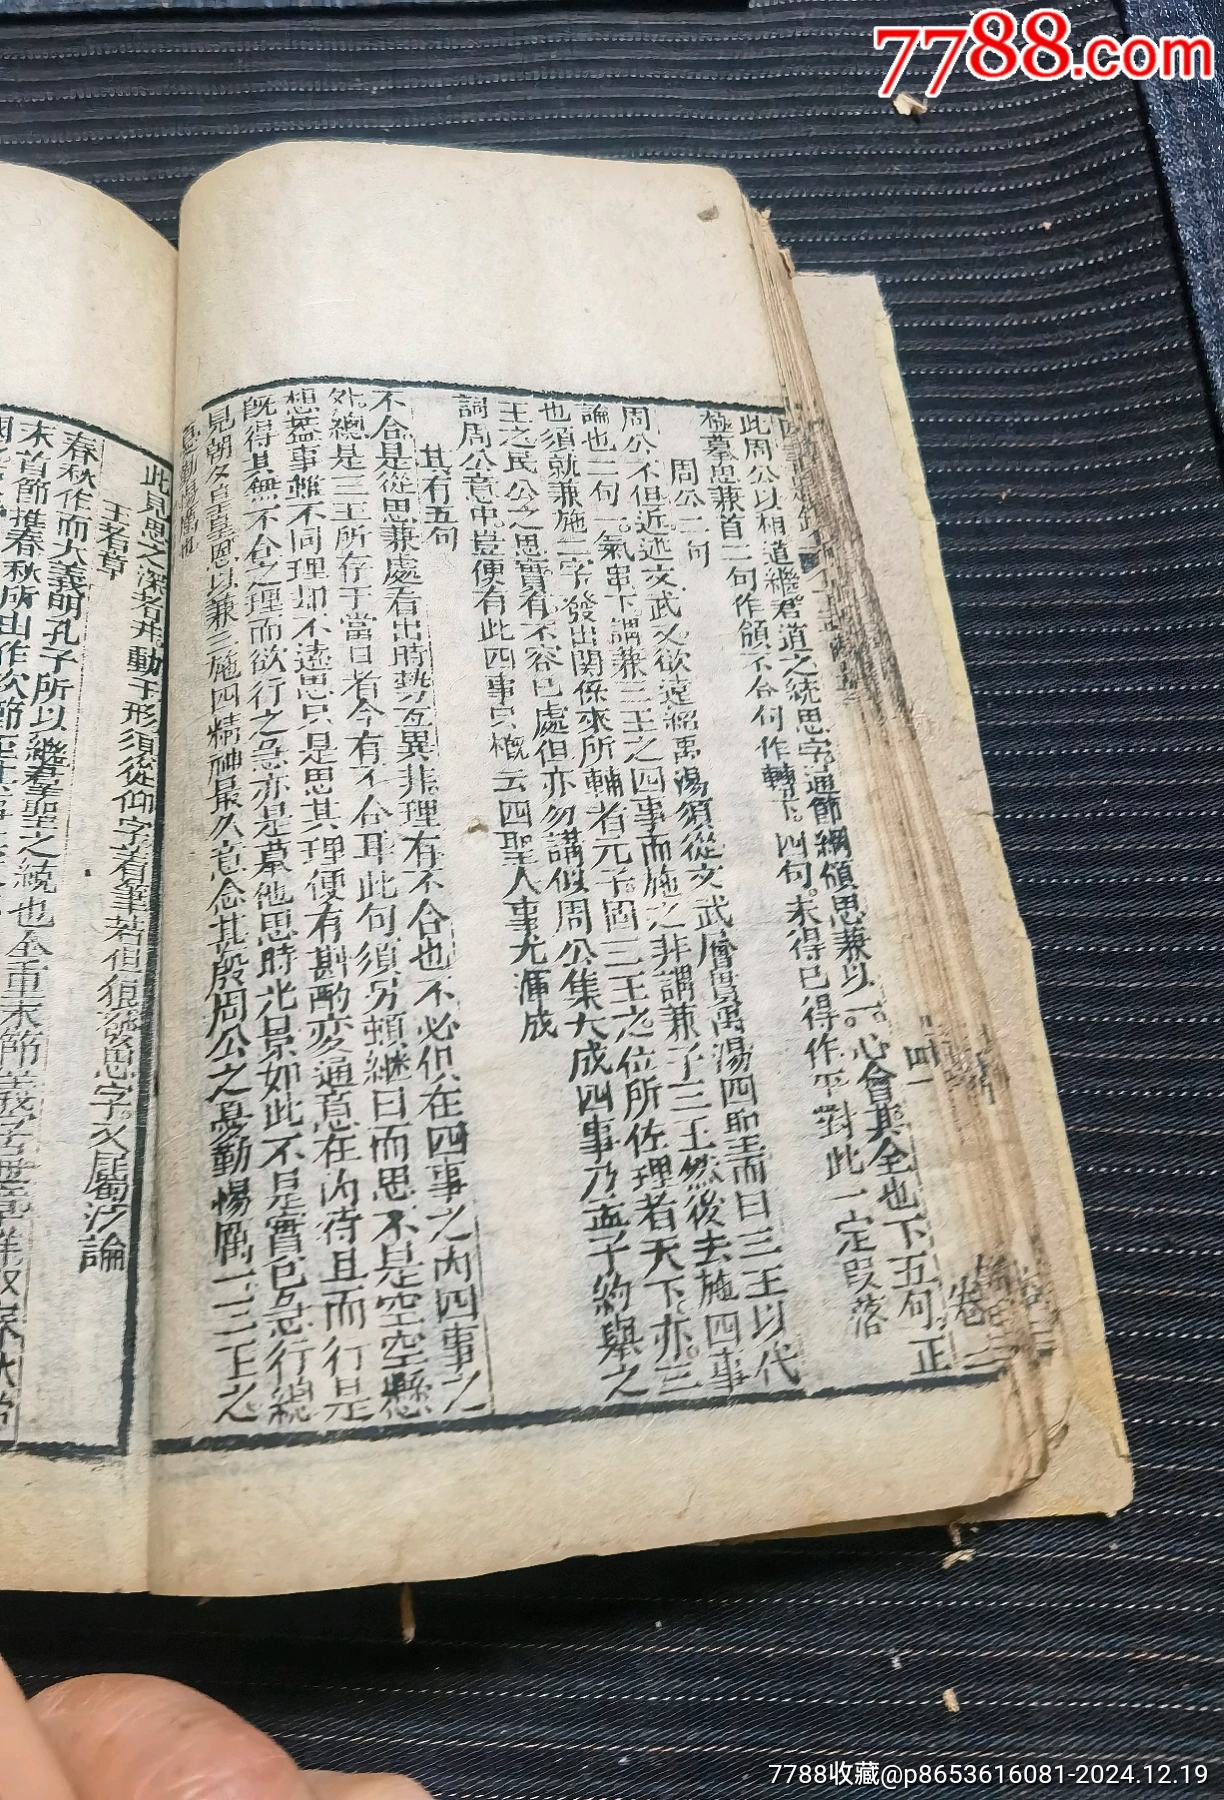 7788.com
此周公以相道繼君道之統思字通節綱領思兼以一心會其全也下五句正
極摹思兼首二句作領不合句作轉下四句未得已得作平對此一定段落
周公二句
周公不但近述文武又欲遠紹禹湯須從文武層累禹湯四聖而曰三王以代
論也二句一氣串下謂兼三王之四事而施之非謂兼了三王然後去施四事
也須就兼施二字發出關係來所輔者元子固三王之位所佐理者天下亦三
王之民公之思實有不容已處但亦勿講似周公集大成四事乃孟子約舉之
詞周公意中豈便有此四事只概云四聖人事尤渾成
其有五句
不合是從思兼處看出時勢互異非理有不合也不必但在四事之內四事之
外總是三王所存于當日者今有不合耳此句須分頓繼日而思不是空空懸
想蓋事雖不同理却不遠思只是思其理便有斟酌変通意在內待且而行是
既得其無不合之理而欲行之急亦是摹他思時光景如此不是實已急行總
見朝夕皇皇思以兼三施四精神最久意念其殷周公之憂勤惕厲一三王之
憂勤惕厲
此見思之深若
動下形須從仰字着筆若但
思字又
論
王者章
春秋作而大義明孔子所以繼羣聖之統也全重末節
末首節推春秋所由作次節
卷三
7788收藏@p8653616081-2024.12.19